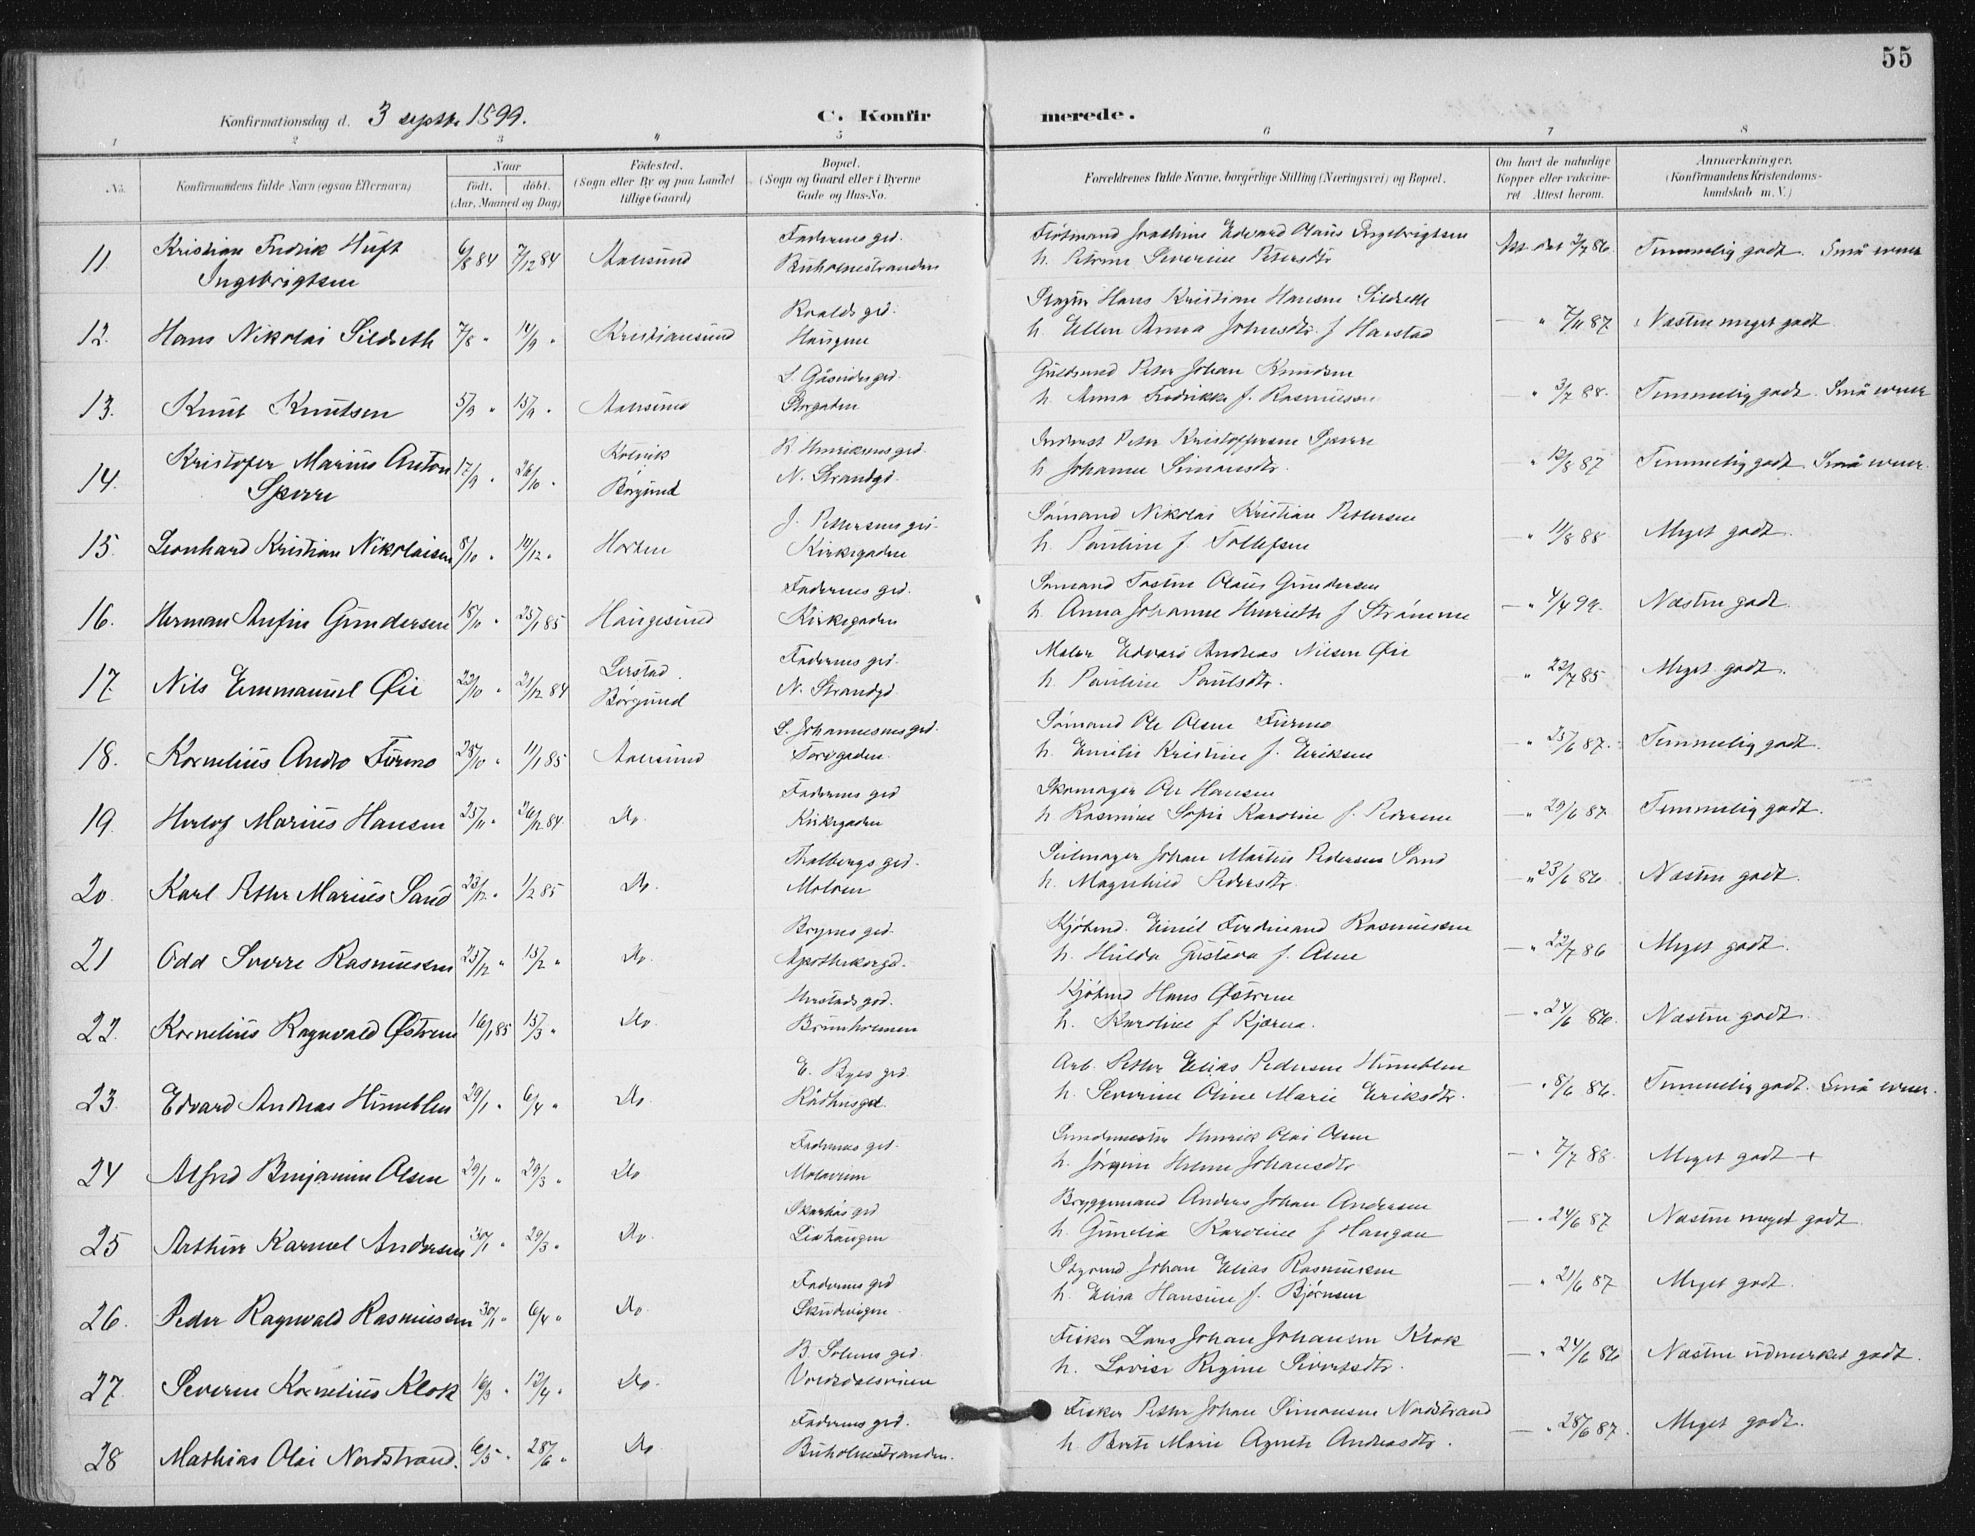 55
Konfirmationsdag d. 3 septbr 1899.
C. Konfirmerede.
1 2 3 4 5 6 7 8
No.
Konfirmandens fulde Navn (ogsaa Efternavn)
Naar
født. døbt.
(Aar, Maaned og Dag)
Fødested.
(Sogn eller By og paa Landet
tillige Gaard)
Bopæl.
(Sogn og Gaard eller i Byerne
Gade og Hus-No.
Forældrenes fulde Navne, borgerlige Stilling (Næringsvei) og Bopæl.
Om havt de naturlige
Kopper eller vakcine-
ret Attest herom.
Anmærkninger.
(Konfirmandens Kristendoms-
kundskab m. V.)
11. Kristian Fredrik Huft 6/8 84 7/12 84 Aalesund Faderens grd.
Ingebrigtsen Buholmstranden
Joachim Edvard Olaus Ingebrigtsen
h. Petrine Severine Petersdtr 7/7 86. Temmelig godt. Små evner
12. Hans Nikolai Sildseth 7/8 " 14/9 " Kristiansund Roalds grd.
Haugene
Hans Kristian Hansen Sildseth
h. Ellen Anna Johnsdtr. f Harstad — " 7/11 87 Næsten meget godt
13. Knut Knutsen 5/9 " 15/9 " Aalesund
Storgaden
Peter Johan Knudsen
h. Anna Fredrikke f. Rasmussen " 3/7 88. Temmelig godt. Små evner
14. Kristofer Marius Anton 17/9 " 26/10 " R Henriksens grd.
Sperre Borgund N. Strandgd.
Peter Kristoffersen Sperre
h. Johanne Simonsdtr. " 12/8 87 Temmelig godt Små evner.
15. Leonhard Kristian Nikolaisen 8/10 " 14/12 " Horten J. Pettersens grd.
Kirkegaden
Sømand Nikolai Kristian Pettersen
h. Pauline f. Tollefsen — " 11/8 88 Meget godt.
16. Herman Anfin Gundersen 18/10 " 25/1 85 Haugesund Faderens grd.
Kirkegaden
Sømand Tostin Olaus Gundersen
h. Anna Johanne Henriette f Strømme — " 4/4 99. Næsten godt.
17. Nils Emmanuel Øie 23/10 " 21/12 84 Lerstad. Faderens grd.
Borgund N. Strandgd
Maler Edvard Andreas Nilsen Øie
h. Pauline Paulsdtr. " 23/7 85 Meget godt.
18. Kornelius Andro Furmo 28/10 " 11/1 85 Aalesund L. Johannesens grd.
Torvgaden.
Sømand Ole Olsen Furmo
h. Emilie Kristine f. Eriksen " 25/6 87. Temmelig godt.
19. Herlof Marius Hansen 25/11 " 26/12 84 Do. Faderens grd
Kirkegaden
Skomager Ole Hansen
h. Rasmine Sofie Karoline f. Pedersen — " 29/6 87 Temmelig godt.
20. Karl Peter Marius Sand 23/12 " 1/2 85 Do. Thalbergs grd.
Moloen
Seilmager Johan Martin Pedersen Sand
h. Magnhild Pedersdtr. — " 23/6 86 Næsten godt.
21 Odd Sverre Rasmussen 25/12 " 15/2 " Do. Brynes grd.
Apothekergd.
Kjøbmd. Emil Ferdinand Rasmussen
h. Hulda Gustava f. Aune — " 22/7 86 Meget godt.
22. Kornelius Ragnvald Østrem 16/1 85 15/3 " Do.
Brunholmen
Kjøbmd Hans Østrem
h. Karoline f Kjærua. — " 24/6 86. Næsten godt.
23. Edvard Andreas Humblen 29/1 " 6/4 " Do. E. Byes grd.
Rådhusgd.
Arb. Petter Elias Pedersen Humblen
h. Severine Oline Marie Eriksdtr. — " 8/6 86. Temmelig godt. Små evner.
24 Alfred Benjamin Olsen 29/1 " 29/3 " Do Faderens grd.
Moloveien
Henrik Olai Olsen
h. Jørgine Helene Johansdtr — " 7/7 88. Meget godt +
25 Arthur Karmel Andersen 30/1 " 29/3 " Do.
Liahaugen
Bryggemand Anders Johan Andersen
h. Gunelia Karoline f Haugan — " 24/6 87 Næsten meget godt.
26. Peder Ragnvald Rasmussen 30/1 " 6/4 " Do. Faderens grd
Skudevigen.
Johan Elias Rasmussen
h. Elisa Hansine f. Bjørnsen — " 21/6 87 Meget godt.
27. Severin Kornelius Klok 16/3 " 13/4 " Do. B. Solems grd.
Volsdalsveien
Fisker Lars Johan Johansen Klok
h. Lovise Regine Sivertsdtr. — " 24/6 86 Næsten udmerket godt.
28 Mathias Olai Nordstrand. 6/5 " 28/6 " Do Faderens grd.
Buholmstranden.
Fisker Petter Johan Simonsen Nordstrand
h. Berte Marie Agnete Andreasdtr. — " 28/6 87. Meget godt.